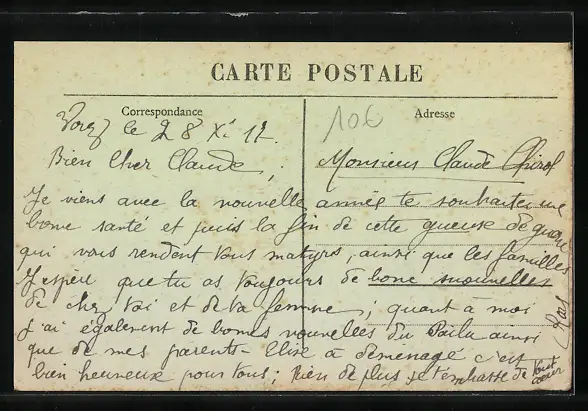 CARTE POSTALE
Correspondance
Adresse
10€
le 28 XI 17.
Bien Cher Claude,
Monsieur Claude
Je viens avec la nouvelle année te souhaiter une
bonne santé et puis la fin de cette gueuse de guerre
qui vous rendent tous martyrs, ainsi que les familles
J'espère que tu as toujours de bonne nouvelles
de chez toi et de ta femme; quant à moi
j'ai également de bonnes nouvelles du Poilu ainsi
que de mes parents - Elise a déménagé c'est
bien heureuse pour tous; Rien de plus je t'embrasse de tout
coeur